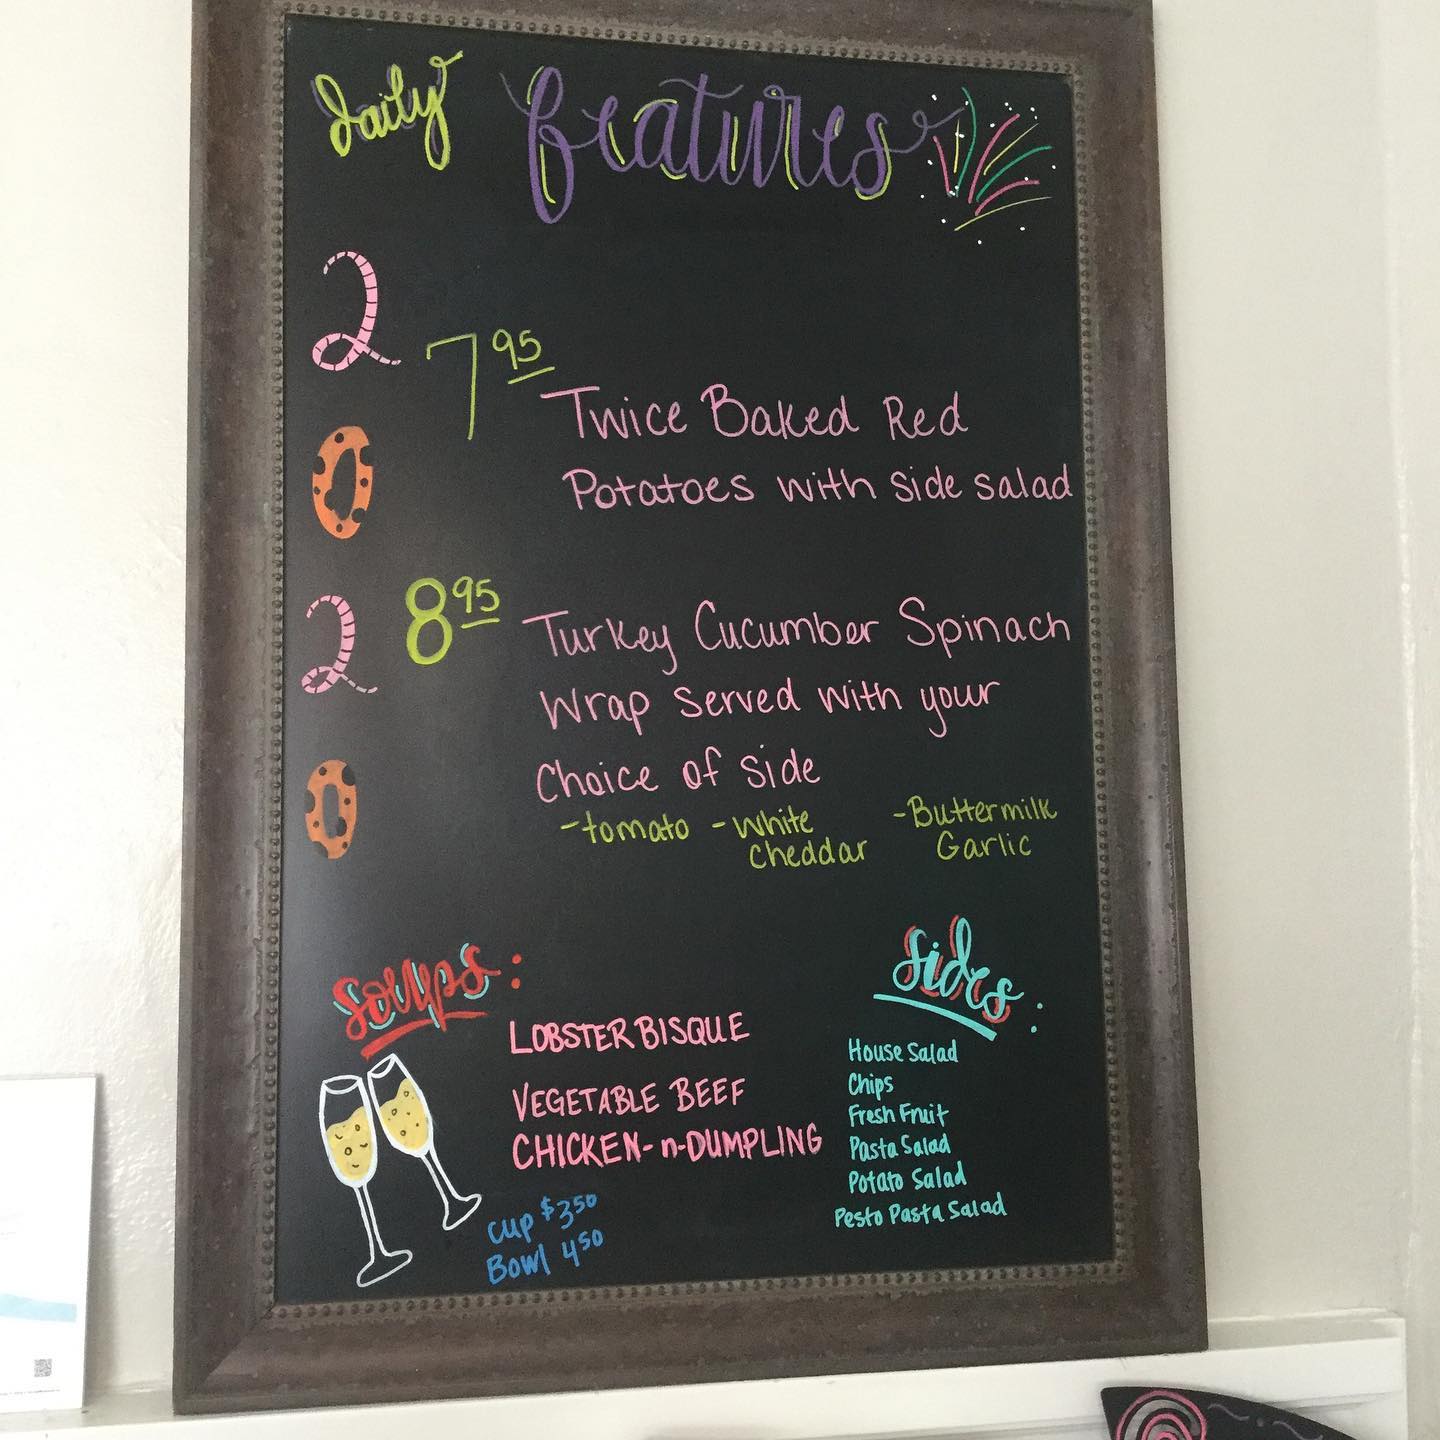 daily features
2
0
2
0
7.95
Twice Baked Red
Potatoes with side salad
8.95
Turkey Cucumber Spinach
Wrap served with your
Choice of Side
-tomato -White cheddar -Buttermilk Garlic
Soups:
LOBSTER BISQUE
VEGETABLE BEEF
CHICKEN-n-DUMPLING
Cup $3.50
Bowl 4.50
Sides:
House Salad
Chips
Fresh Fruit
Pasta Salad
Potato Salad
Pesto Pasta Salad